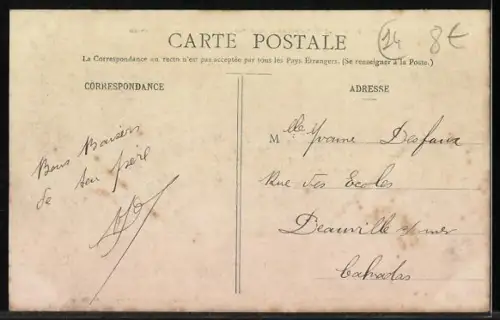 CARTE POSTALE
14 8€
La Correspondance au recto n'est pas acceptée par tous les Pays Étrangers. (Se renseigner à la Poste.)
CORRESPONDANCE
ADRESSE
Bons Baisers
de ton père
Mlle Yvonne Desfaux
Rue des Ecoles
Deauville s/ mer
Calvados